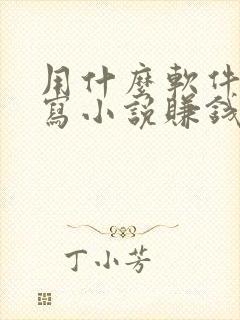 用什麼軟件
寫小說賺錢
丁小芳